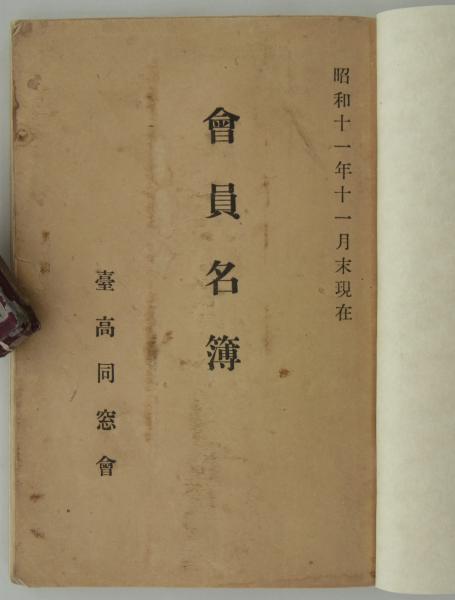 昭和十一年十一月末現在
會員名簿
臺高同窓會